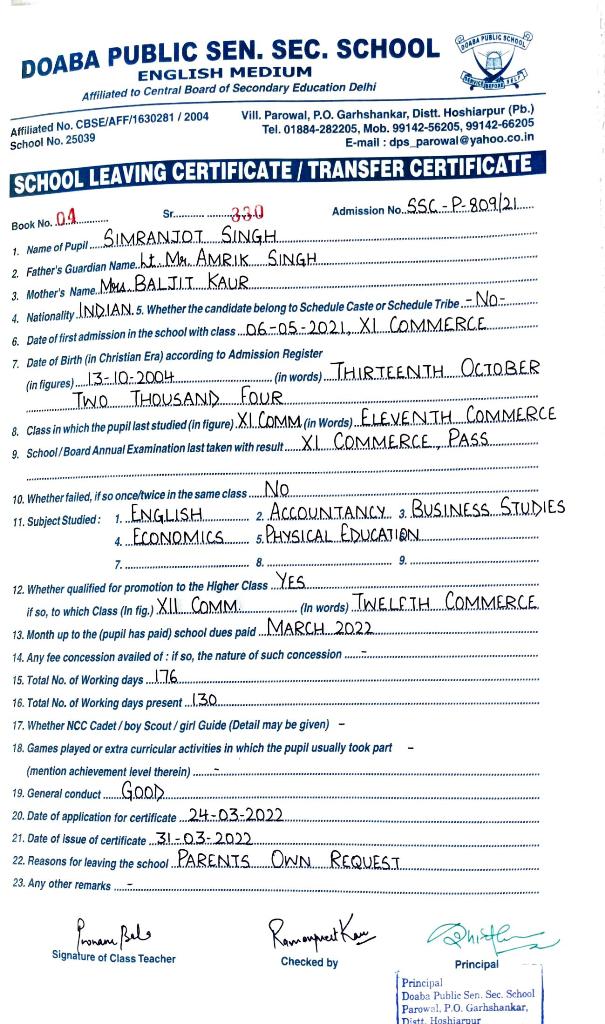 DOABA PUBLIC SEN. SEC. SCHOOL
DOABA PUBLIC SCHOOL
SERVICE BEFORE SELF
ENGLISH MEDIUM
Affiliated to Central Board of Secondary Education Delhi
Affiliated No. CBSE/AFF/1630281 / 2004
School No. 25039
Vill. Parowal, P.O. Garhshankar, Distt. Hoshiarpur (Pb.)
Tel. 01884-282205, Mob. 99142-56205, 99142-66205
E-mail : dps_parowal@yahoo.co.in
SCHOOL LEAVING CERTIFICATE / TRANSFER CERTIFICATE
Book No. 04 Sr. 330 Admission No. SSC-P-809/21
1. Name of Pupil SIMRANJOT SINGH
2. Father's Guardian Name Lt. Mr. AMRIK SINGH
3. Mother's Name Mrs BALJIT KAUR
4. Nationality INDIAN 5. Whether the candidate belong to Schedule Caste or Schedule Tribe -No-
6. Date of first admission in the school with class 06-05-2021, XI COMMERCE
7. Date of Birth (in Christian Era) according to Admission Register
(in figures) 13-10-2004 (in words) THIRTEENTH OCTOBER
TWO THOUSAND FOUR
8. Class in which the pupil last studied (in figure) XI COMM. (in Words) ELEVENTH COMMERCE
9. School / Board Annual Examination last taken with result XI COMMERCE, PASS
10. Whether failed, if so once/twice in the same class NO
11. Subject Studied : 1. ENGLISH 2. ACCOUNTANCY 3. BUSINESS STUDIES
4. ECONOMICS 5. PHYSICAL EDUCATION 6.
7. 8. 9.
12. Whether qualified for promotion to the Higher Class YES
if so, to which Class (In fig.) XII COMM. (In words) TWELFTH COMMERCE
13. Month up to the (pupil has paid) school dues paid MARCH 2022
14. Any fee concession availed of : if so, the nature of such concession -
15. Total No. of Working days 176
16. Total No. of Working days present 130
17. Whether NCC Cadet / boy Scout / girl Guide (Detail may be given) -
18. Games played or extra curricular activities in which the pupil usually took part -
(mention achievement level therein) -
19. General conduct GOOD
20. Date of application for certificate 24-03-2022
21. Date of issue of certificate 31-03-2022
22. Reasons for leaving the school PARENTS OWN REQUEST
23. Any other remarks -
Ramanpreet Kaur
Signature of Class Teacher Checked by Principal
Principal
Doaba Public Sen. Sec. School
Parowal, P.O. Garhshankar,
Distt. Hoshiarpur